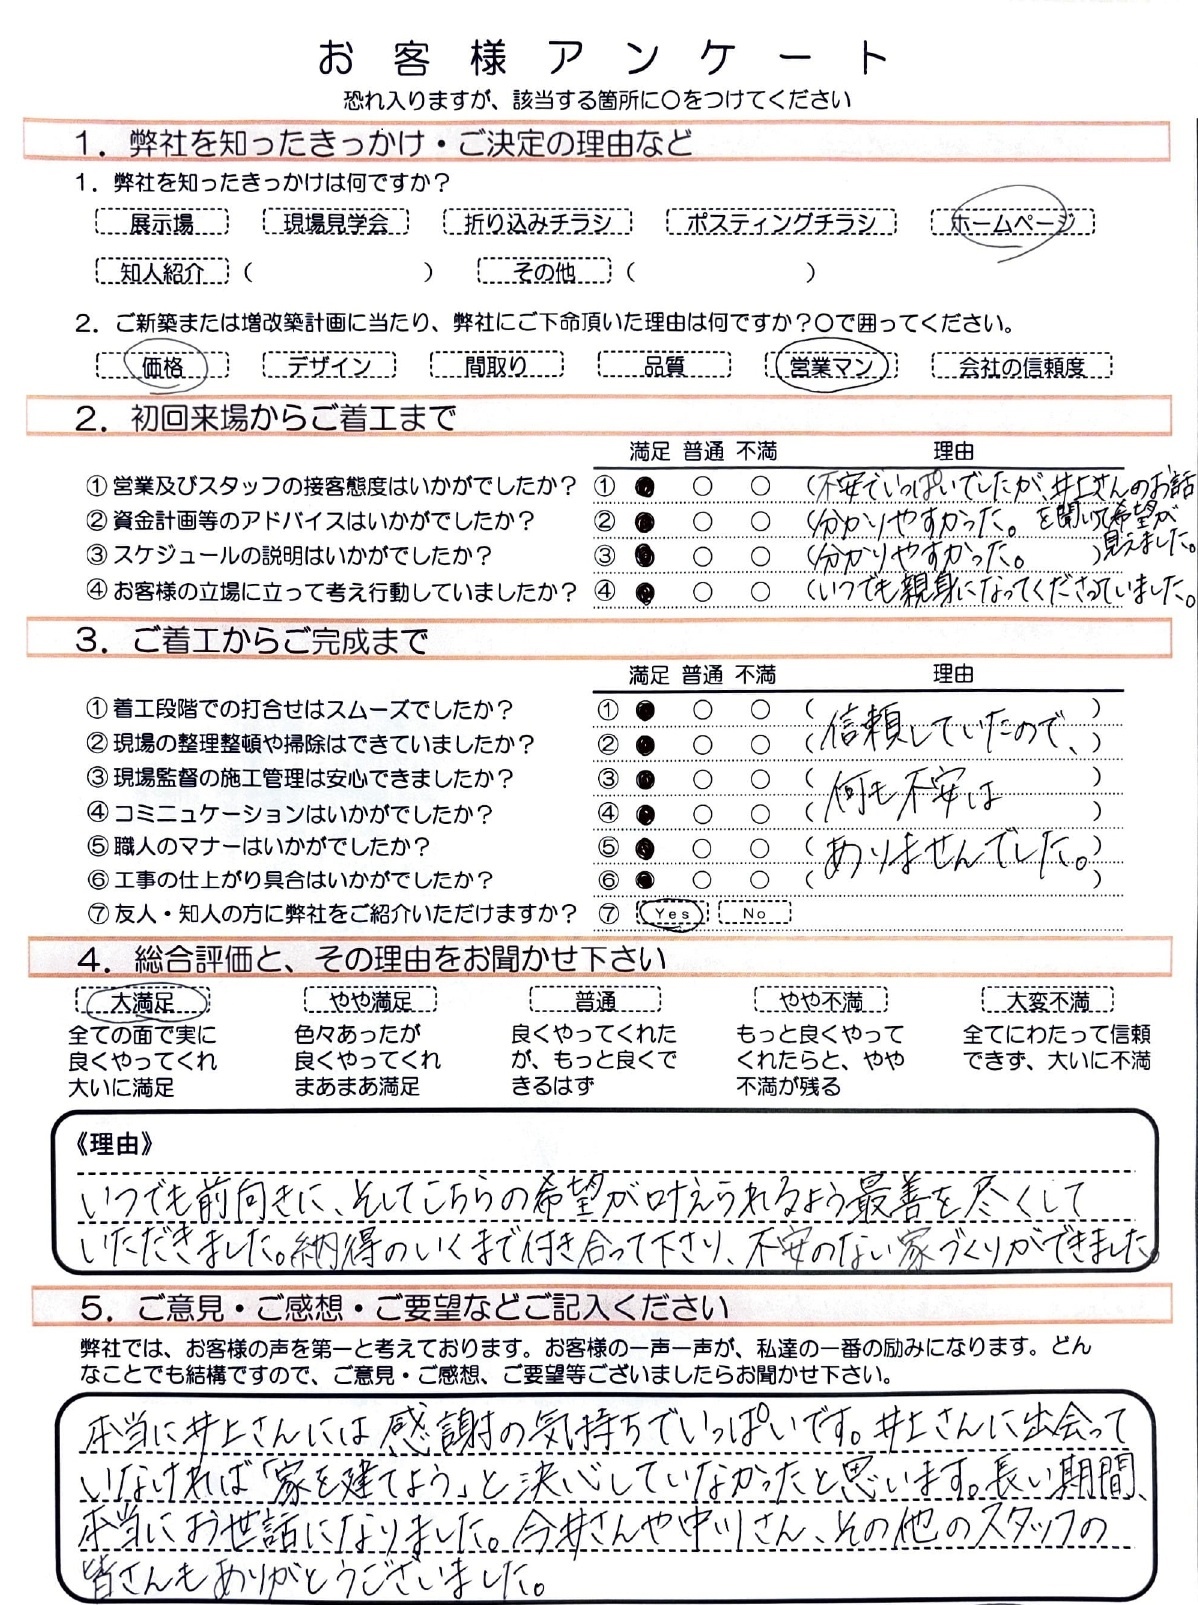 お客様アンケート
恐れ入りますが、該当する箇所に〇をつけてください
1．弊社を知ったきっかけ・ご決定の理由など
1．弊社を知ったきっかけは何ですか？
展示場 現場見学会 折り込みチラシ ポスティングチラシ ホームページ
知人紹介 （ ） その他 （ ）
2．ご新築または増改築計画に当たり、弊社にご下命頂いた理由は何ですか？〇で囲ってください。
価格 デザイン 間取り 品質 営業マン 会社の信頼度
2．初回来場からご着工まで
満足 普通 不満 理由
①営業及びスタッフの接客態度はいかがでしたか？ ① ● ○ ○ （不安でいっぱいでしたが、井上さんのお話を聞いて希望が見えました。
②資金計画等のアドバイスはいかがでしたか？ ② ● ○ ○ （分かりやすかった。
③スケジュールの説明はいかがでしたか？ ③ ● ○ ○ （分かりやすかった。 ）
④お客様の立場に立って考え行動していましたか？ ④ ● ○ ○ （いつでも親身になってくださっていました。
3．ご着工からご完成まで
満足 普通 不満 理由
①着工段階での打合せはスムーズでしたか？ ① ● ○ ○ （ 信頼していたので、 ）
②現場の整理整頓や掃除はできていましたか？ ② ● ○ ○ （ ）
③現場監督の施工管理は安心できましたか？ ③ ● ○ ○ （ 何も不安は ）
④コミニュケーションはいかがでしたか？ ④ ● ○ ○ （ ）
⑤職人のマナーはいかがでしたか？ ⑤ ● ○ ○ （ ありませんでした。 ）
⑥工事の仕上がり具合はいかがでしたか？ ⑥ ● ○ ○ （ ）
⑦友人・知人の方に弊社をご紹介いただけますか？ ⑦ Yes No
4．総合評価と、その理由をお聞かせ下さい
大満足 やや満足 普通 やや不満 大変不満
全ての面で実に 色々あったが 良くやってくれた もっと良くやって 全てにわたって信頼
良くやってくれ 良くやってくれ が、もっと良くで くれたらと、やや できず、大いに不満
大いに満足 まあまあ満足 きるはず 不満が残る
《理由》
いつでも前向きに、そしてこちらの希望が叶えられるよう最善を尽くして
いただきました。納得のいくまで付き合って下さり、不安のない家づくりができました。
5．ご意見・ご感想・ご要望などご記入ください
弊社では、お客様の声を第一と考えております。お客様の一声一声が、私達の一番の励みになります。どん
なことでも結構ですので、ご意見・ご感想、ご要望等ございましたらお聞かせ下さい。
本当に井上さんには感謝の気持ちでいっぱいです。井上さんに出会って
いなければ「家を建てよう」と決心していなかったと思います。長い期間、
本当にお世話になりました。今井さんや中川さん、その他のスタッフの
皆さんもありがとうございました。